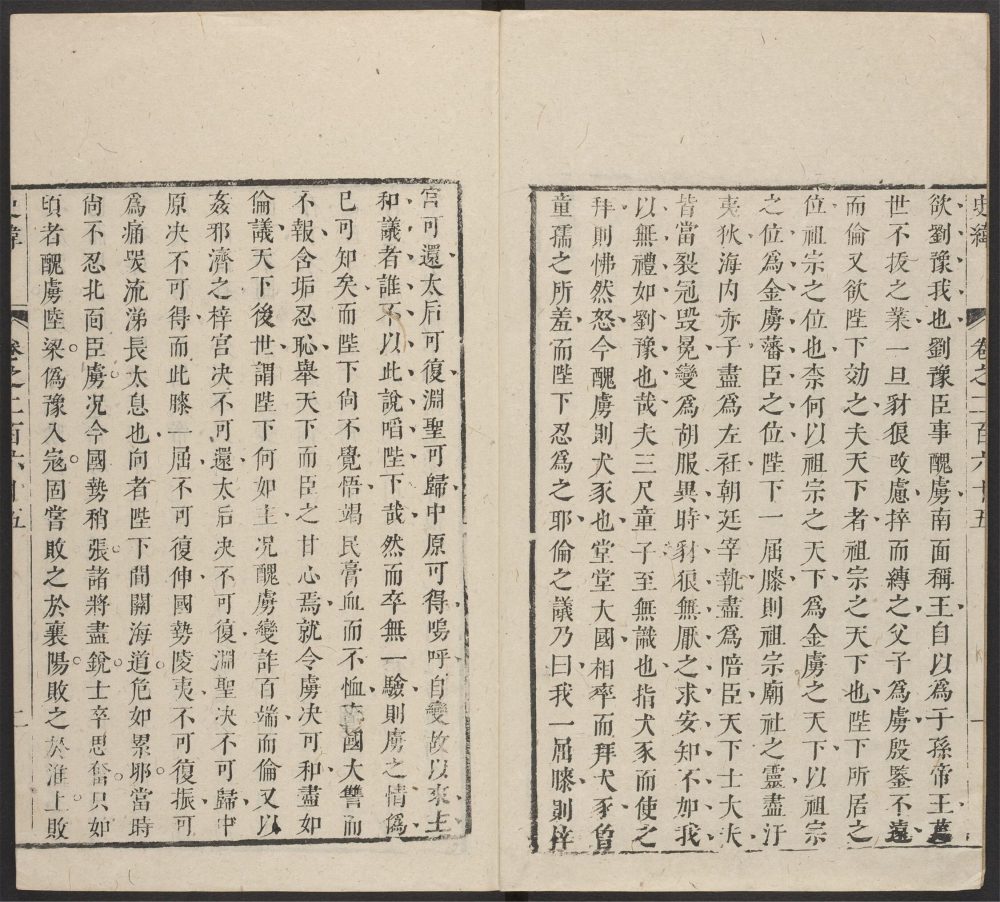 史緯 卷之二百六十五 一
欲劉豫我也劉豫臣事醜虜南面稱王自以爲子孫帝王萬
世不拔之業一旦豺狼改慮捽而縛之父子爲虜殷鑒不遠
而倫又欲陛下効之夫天下者祖宗之天下也陛下所居之
位祖宗之位也柰何以祖宗之天下爲金虜之天下以祖宗
之位爲金虜藩臣之位陛下一屈膝則祖宗廟社之靈盡汙
夷狄海內赤子盡爲左衽朝廷宰執盡爲陪臣天下士大夫
皆當裂冠毀冕變爲胡服異時豺狼無厭之求安知不加我
以無禮如劉豫也哉夫三尺童子至無識也指犬豕而使之
拜則怫然怒今醜虜則犬豕也堂堂大國相率而拜犬豕曾
童孺之所羞而陛下忍爲之耶倫之議乃曰我一屈膝則梓
宮可還太后可復淵聖可歸中原可得嗚呼自變故以來主
和議者誰不以此說啗陛下哉然而卒無一驗則虜之情僞
已可知矣而陛下尙不覺悟竭民膏血而不恤國大讐而
不報含垢忍恥舉天下而臣之甘心焉就令虜决可和盡如
倫議天下後世謂陛下何如主况醜虜變詐百端而倫又以
姦邪濟之梓宮决不可還太后决不可復淵聖决不可歸中
原决不可得而此膝一屈不可復伸國勢陵夷不可復振可
爲痛哭流涕長太息也向者陛下間關海道危如累耶當時
尙不忍北面臣虜况今國勢稍張諸將盡銳士卒思奮只如
頃者醜虜陸梁僞豫入寇固嘗敗之於襄陽敗之於淮上敗
史緯 卷之二百六十五 二